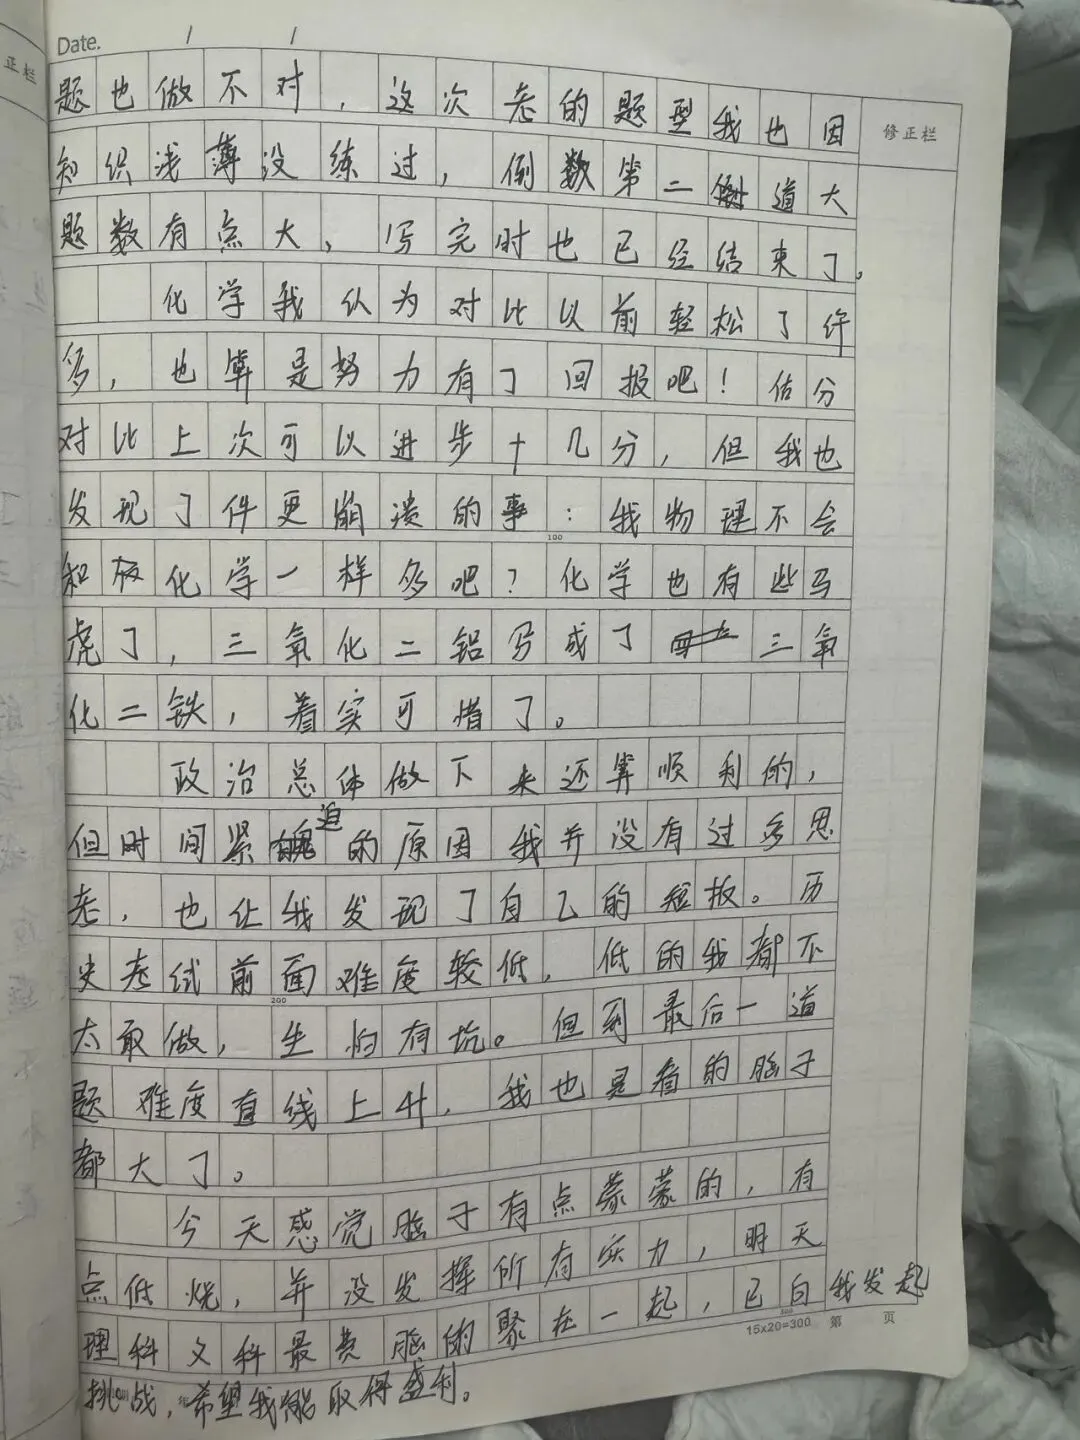 Date. / /
正栏
修正栏
题也做不对，这次考的题型我也因
知识浅薄没练过，倒数第二道大
题数有点大，写完时也已经结束了。
化学我认为对比以前轻松了许
多，也算是努力有了回报吧！估分
对比上次可以进步十几分，但我也
发现了件更崩溃的事：我物理不会
100
和化学一样多吧？化学也有些马
虎了，三氧化二铝写成了三氧
化二铁，着实可惜了。
政治总体做下来还算顺利的，
但时间紧迫的原因我并没有过多思
考，也让我发现了自己的短板。历
史考试前面难度较低，低的我都不
200
太敢做，生怕有坑。但到最后一道
题难度直线上升，我也是看的脑子
都大了。
今天感觉脑子有点蒙蒙的，有
点低烧，并没发挥所有实力，明天
理科文科最费脑的聚在一起，已向我发起
300
15x20=300 第 页
挑战，希望我能取得盛利。